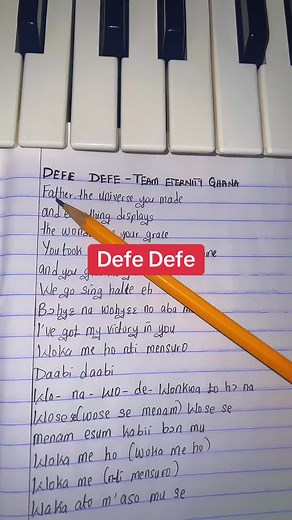 DEFE DEFE - TEAM ETERNITY GHANA
Father the universe you made
and displays
the your grace
Defe Defe
You took
and you
We go sing halle eh
Bɔhyɛ na wohyɛɛ no aba
I've got my victory in you
Woka me ho nti mensuro
Daabi daabi
na - wo - de - Wonkwa to hɔ na
(wose se menam) Wose se
menam esum kabii bɔn mu
Woka me ho (woka me ho)
Woka me (nti mensuro)
Waka ato m'aso mu se